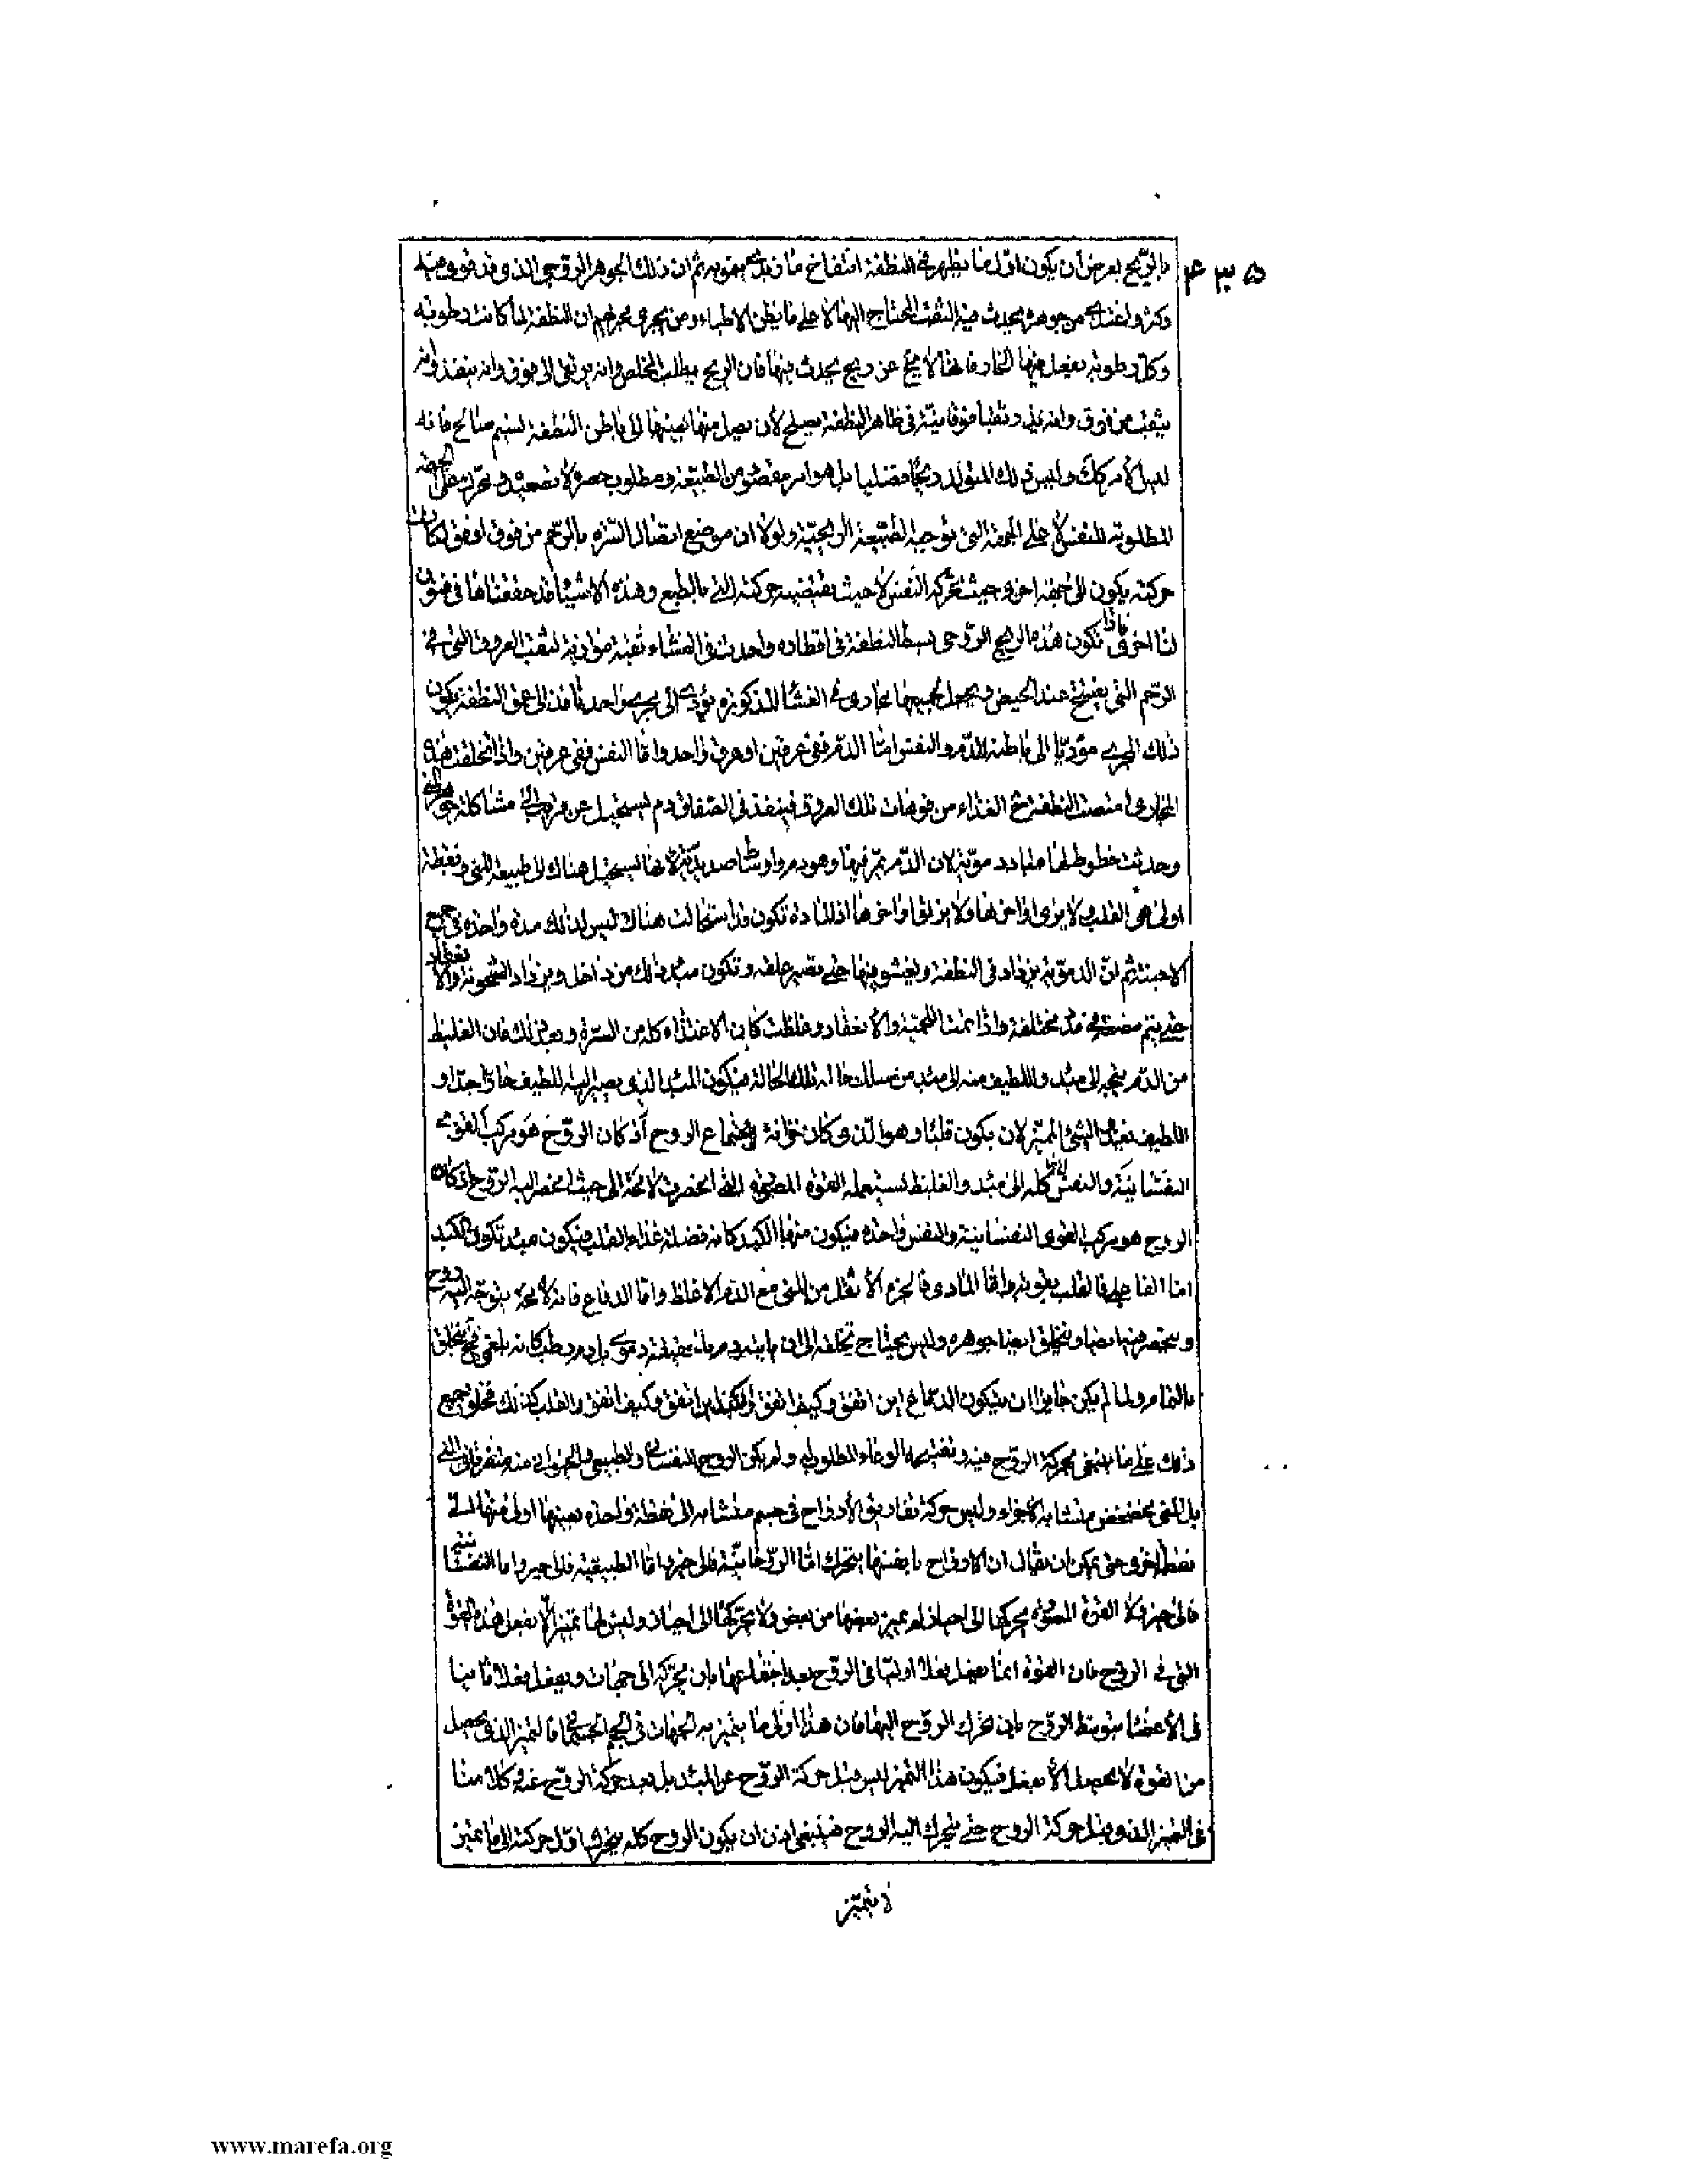 ٤٣٥
بالريح يعرض أن يكون اول ما يظهر في النطفة انتفاخ ثم ان ذلك الجوهر الروحي الذي قد قوي منه
وكثر من جوهره يحدث منه الثقب المحتاج اليها لا على ما يظن الاطباء ومن يجري مجراهم ان النطفة لما كانت رطوبة
وكل رطوبة يفعل فيها الحار فانها لا يخ عن ريح يحدث فيها فان الريح يطلب المخلص وانه يرتقى الى فوق وانه ينفذ وانه
يثقب من فوق وانه ثقبا فوقانية في ظاهر النطفة يصلح لأن يصل منها بعينها الى باطن النطفة نسيم صالح فانه
ليس الأمر كك وليس ذلك المتولد ريحا فضليا بل هو امر مقصود من الطبيعة ومطلوب على الجهة
المطلوبة للنفس لا على الجهة التي توجبه الطبيعة الريحية ولولا ان موضع اتصال السرة بالرحم من فوق اوفق لكانت
حركته يكون الى جهة اخرى حيث تحركه النفس لا حيث يقتضيه حركته التي بالطبع وهذه الاشياء قد حققناها في فنون
لنا اخرى فاذا تكون هذه الريح الروحي بسط النطفة في اقطاره واحدث في الغشاء ثقبة موازية لثقب العروق التي في
الرحم التي ينفتح عند الحيض ويحصل لجميعها مجارى في الغشاء المذكورة يؤدى الى مجرى واحد نافذ الى عمق النطفة يكون
ذلك المجرى مؤديا الى باطنه الدم والنفس اما الدم ففي عرقين او عرق واحد واما النفس ففي عرقين واذا تخلقت هذه
المجارى امتصت النطفة ح الغذاء من فوهات تلك العروق فينفذ في الصفاق دم يستحيل عن قرب الى مشاكلة جوهر المنى
وحدثت خطوط لها مبادى دموية لان الدم يمر فيها وهو دم لانها يستحيل هناك الى طبيعة المنى ونقطة
اولى هي القلب ولا يرى اواخرها اذ المادة تكون قد استحالت هناك ليس لذلك مدة واحدة في جميع
الاجنة ثم ان الدموية يزداد في النطفة ويفشو فيها حتى يصير علقة وتكون مبدء ذلك من داخل ويزداد السخونة والانعقاد
حتى يتم مضغة في مدد مختلفة واذا تمت اللحمية والانعقاد وغلظت كان الاغتذاء كله من السرة وبعد ذلك فان الغليظ
من الدم يتميز الى مبدء واللطيف منه الى مبدء من مسلك حاله تلك الحالة فيكون المبدء الذي يصير اليه اللطيف حارا جدا و
اللطيف يعد الشئ المميز لان يكون قلبا وهو الذي كان خزانة لاجتماع الروح اذ كان الروح هو مركب القوى
النفسانية والنفس كله الى مبدء والغليظ يستعمله القوة المصورة التي انحصرت لا محالة الى حيث انحصر اليه الروح اذ كان
الروح هو مركب القوى النفسانية والنفس واحدة فيكون منها الكبد كانه فضلة غذاء القلب فيكون مبدء تكون الكبد
اما الفاعلي فالقلب بقوته واما المادى فالجزء الأثقل من المنى مع الدم الاغلظ واما الدماغ فانه لا محة يتوجه اليه روح
ويحتصر فيها ايضا ويتخلق ايضا جوهره وليس يحتاج تخلقه الى ان يأتيه دم بل دم رطب كانه بلغمى ثم يتخلق
بالتمام ولما لم يكن جايزا ان يتكون الدماغ اين اتفق وكيف اتفق والكبد اين اتفق وكيف اتفق والقلب كذلك فخلق جميع
ذلك على ما ينبغى بحركة الروح فيه الى الوعاء المطلوب به ولم يكن الروح النفسانى والطبيعى والحيوانى منه متفرقا في المنى
بل المنى متشابه الاجزاء وليس حركة تفاريق الأرواح في جسم متشابه الى نقطة واحدة بعينها اولى منها الى
نقطة اخرى حتى يمكن ان يقال ان الارواح بانفسها يتحرك اما الروحانية فالى حيز واما الطبيعية فالى حيز واما النفسانية
فالى حيز ولا القوة المصورة يحركها الى احياز لم يميز بعضها من بعض ولا يحركها الى احياز وليس لها تميز الا بفعل هذه القوة
التي في الروح فان القوة انما يفعل فعلا اوليا في الروح بعد اجتماعها بان يحركه الى جهات ويفعل فعلا ثانيا
في الأعضاء بتوسط الروح بان يحرك الروح اليها فان هذا اولى ما يتميز به الجهات في الجسم فالتميز الذي يحصل
من القوة لا يحصل الا بفعل فيكون هذا التميز ليس قبل حركة الروح عن المبدء بل بعد حركة الروح عنه وكلامنا
في التميز الذي قبل حركة الروح حتى يتحرك اليه الروح فينبغى اذن ان يكون الروح كله يتحرك اول حركته الى ما غير
لا يتميز
www.marefa.org